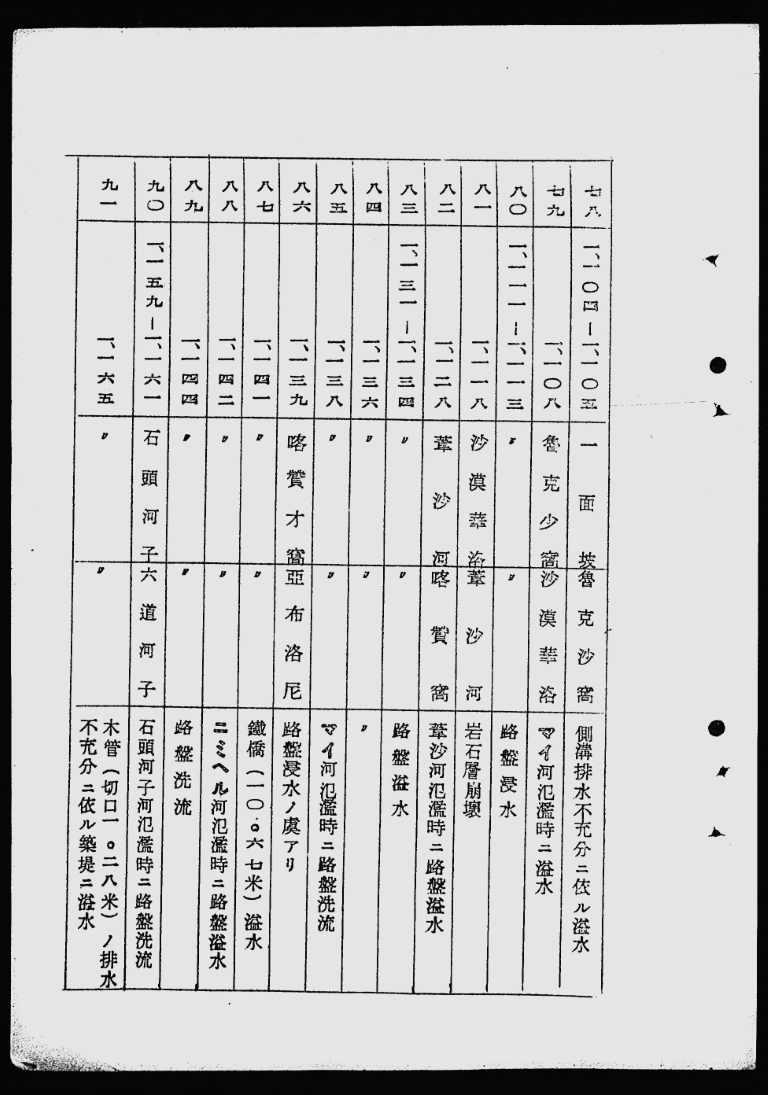 七八 一、一〇四―一、一〇五 一面坡 魯克沙窩 側溝排水不充分ニ依ル溢水
七九 一、一〇八 魯克少窩 沙漠華洛 マイ河氾濫時ニ溢水
八〇 一、一一一―一、一一三 〃 〃 路盤浸水
八一 一、一一八 沙漠華洛 葦沙河 岩石層崩壞
八二 一、一二八 葦沙河 喀贊窩 葦沙河氾濫時ニ路盤溢水
八三 一、一三一―一、一三四 〃 〃 路盤溢水
八四 一、一三六 〃 〃 〃
八五 一、一三八 〃 〃 マイ河氾濫時ニ路盤洗流
八六 一、一三九 喀贊才窩 亞布洛尼 路盤浸水ノ虞アリ
八七 一、一四一 〃 〃 鐵橋(一〇。六七米)溢水
八八 一、一四二 〃 〃 ニミヘル河氾濫時ニ路盤溢水
八九 一、一四四 〃 〃 路盤洗流
九〇 一、一五九―一、一六一 石頭河子 六道河子 石頭河子河氾濫時ニ路盤洗流
九一 一、一六五 〃 〃 木管(切口一。二八米)ノ排水
不充分ニ依ル築堤ニ溢水